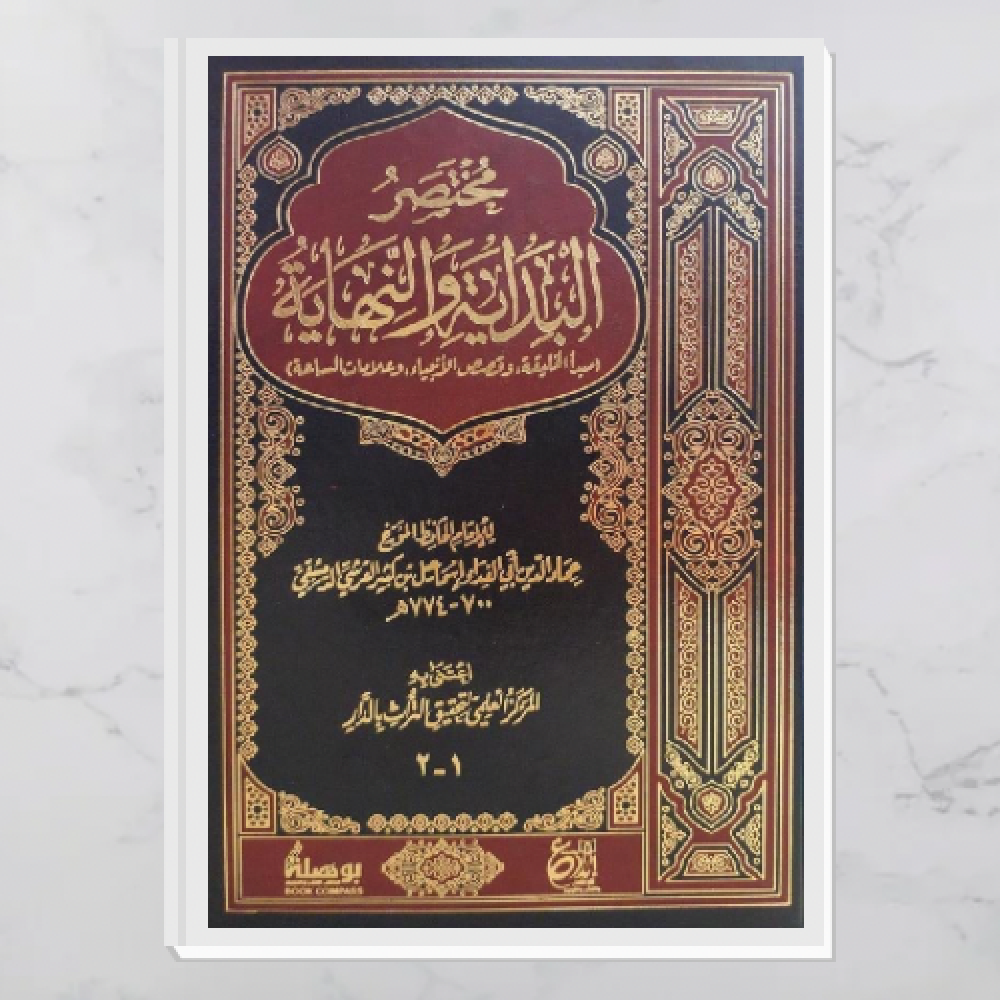 مُخْتَصَرُ
البِدَايَةِ وَالنِّهَايَةِ
(مبدأ الخليقة، وقصص الأنبياء، وعلامات الساعة)
للإمام الحافظ المؤرخ
عماد الدين أبي الفداء إسماعيل بن كثير القرشي الدمشقي
٧٠٠-٧٧٤هـ
اعتنى به
المركز العلمي لتحقيق التراث بالدار
١-٢
بوصلة
BOOK COMPASS
إبداع